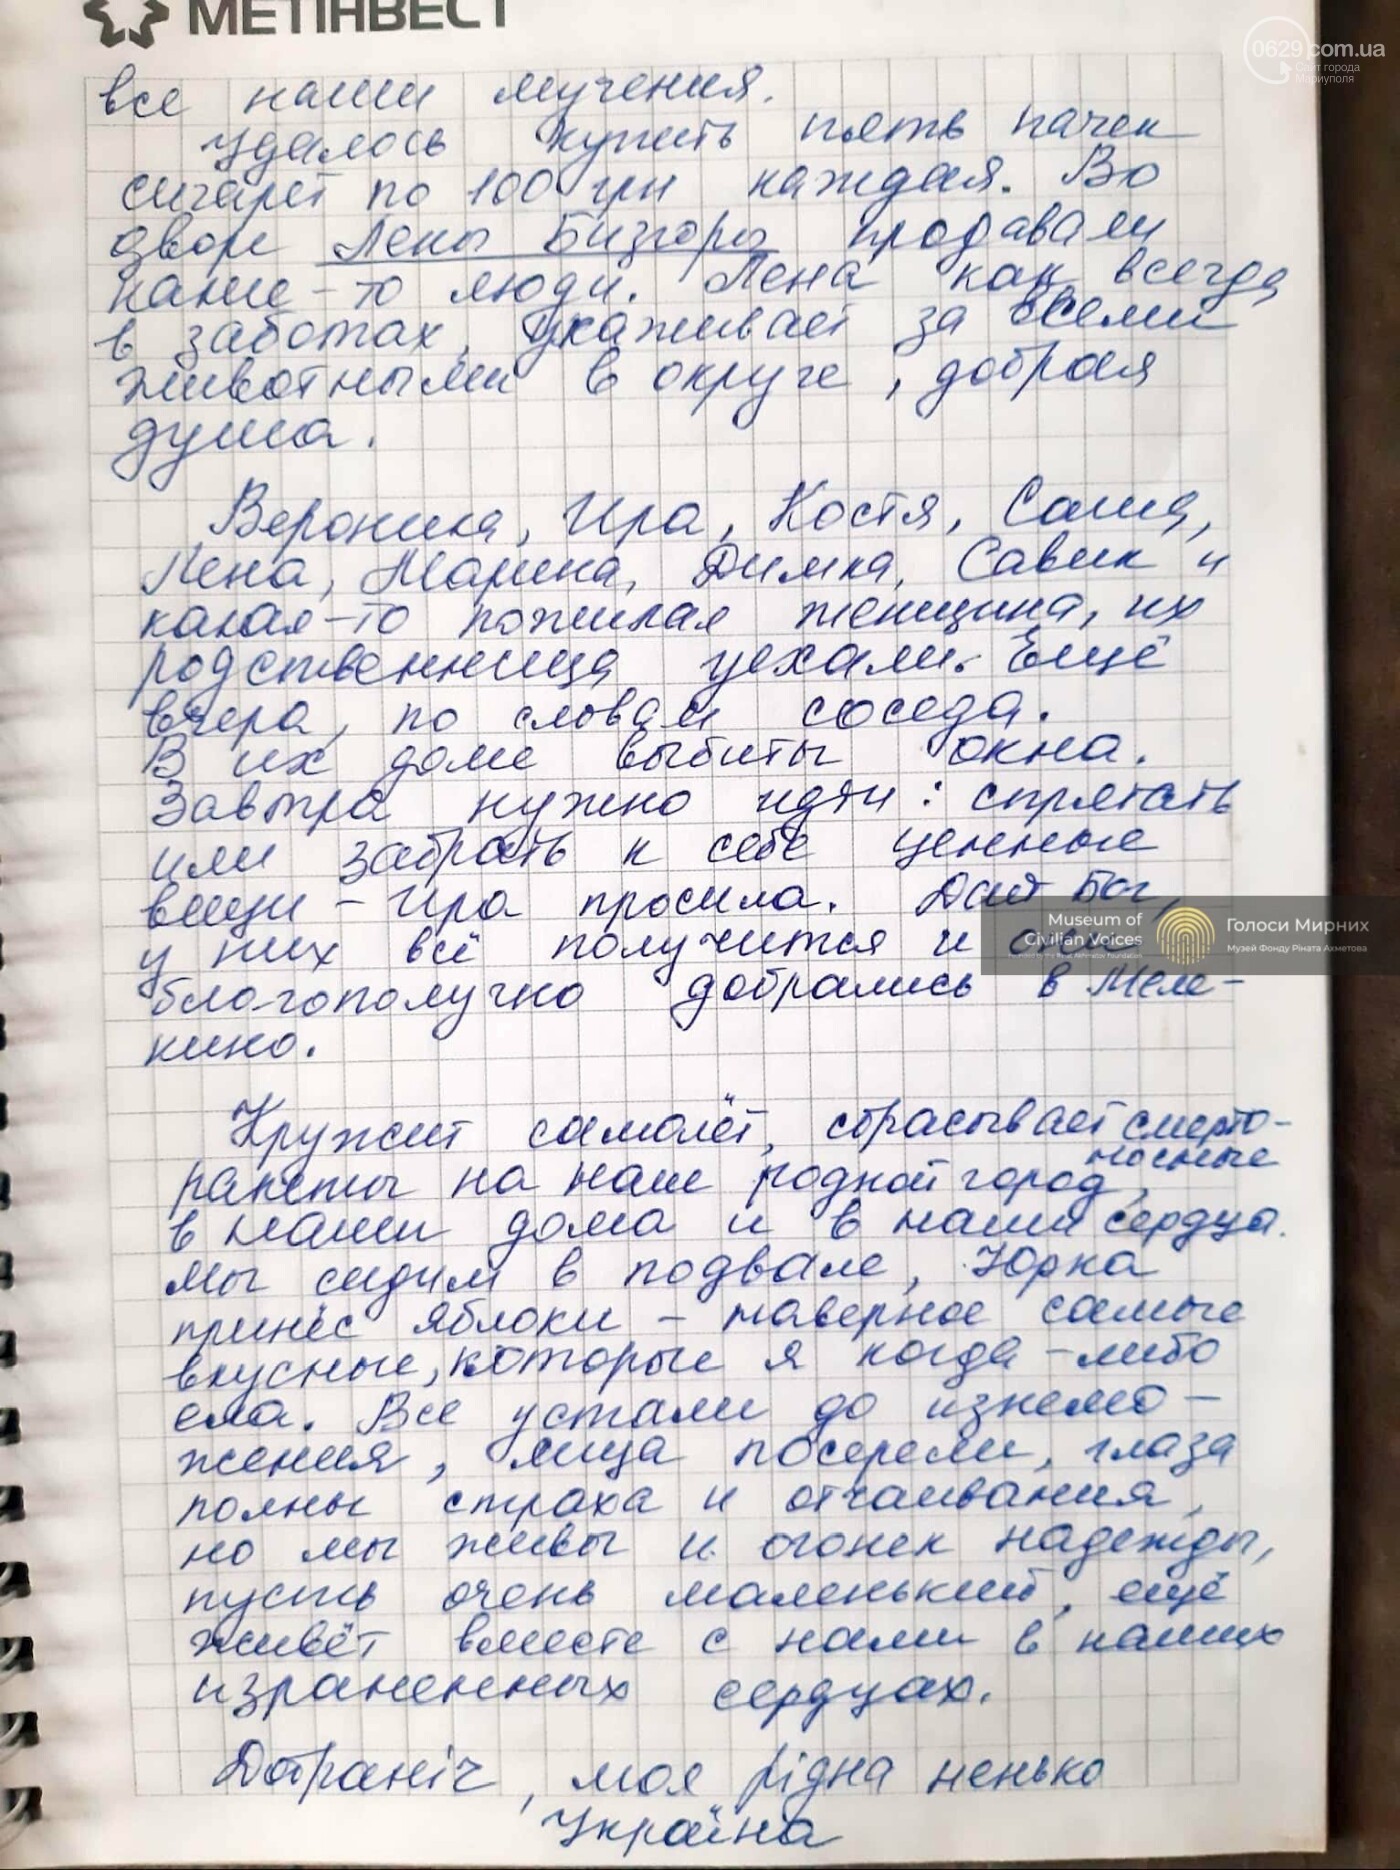 МЕТІНВЕСТ
0629.com.ua
Сайт города
Мариуполя
все наши мучения.
Удалось купить пять пачек
сигарет по 100 грн каждая. Во
дворе Лены Бизгоры продавали
какие-то люди. Лена как всегда
в заботах, ухаживает за всеми
животными в округе, добрая
душа.
Вероника, Ира, Костя, Саша,
Лена, Марина, Димка, Савик и
какая-то пожилая женщина, их
родственница уехали. Ещё
вчера, по словам соседа.
В их доме выбиты окна.
Завтра нужно идти: спрятать
или забрать к себе ценные
вещи - Ира просила. Дай Бог,
у них всё получится и они
благополучно добрались в Меле-
кино.
Кружит самолёт, сбрасывает смерто-
носные
ракеты на наш родной город,
в наши дома и в наши сердца.
Мы сидим в подвале, Юрка
принёс яблоки - наверное самые
вкусные, которые я когда-либо
ела. Все устали до изнемо-
жения, лица посерели, глаза
полны страха и отчаивания,
но мы живы и огонек надежды,
пусть очень маленький, ещё
живёт вместе с нами в наших
израненных сердцах.
Добраніч, моя рідна ненько
Україна
Museum of
Civilian Voices
Голоси Мирних
Музей Фонду Ріната Ахметова